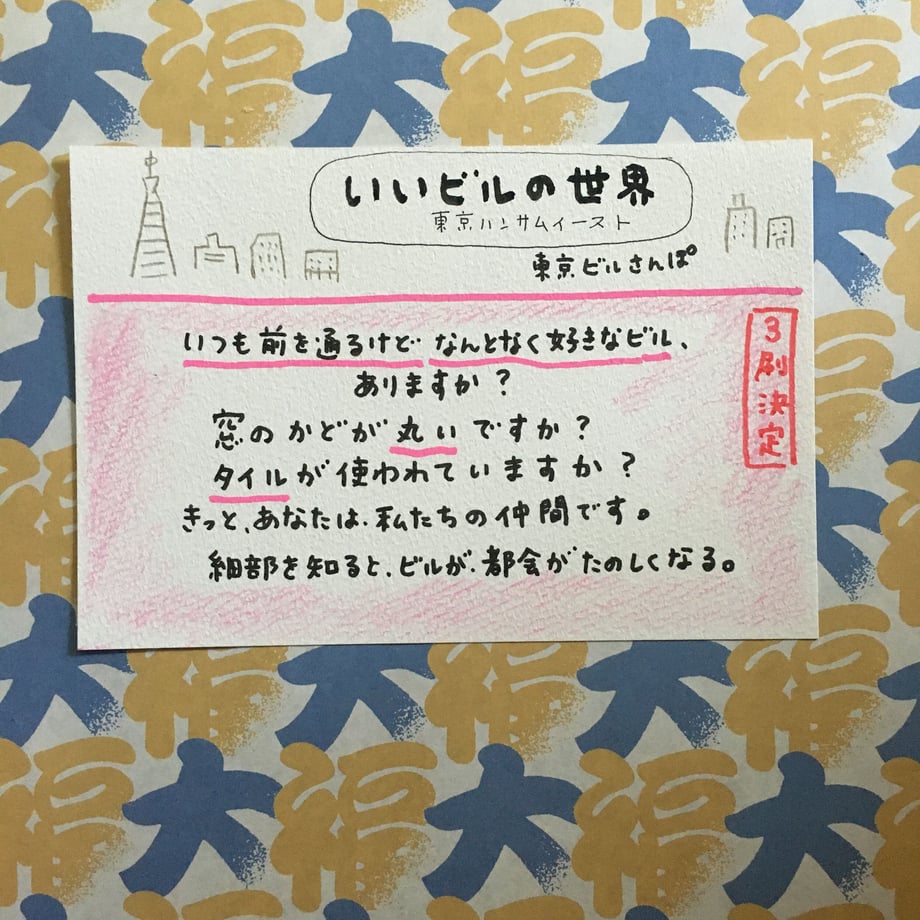 いいビルの世界
東京ハンサムイースト
東京ビルさんぽ
3刷決定
いつも前を通るけどなんとなく好きなビル、
ありますか？
窓のかどが丸いですか？
タイルが使われていますか？
きっと、あなたは、私たちの仲間です。
細部を知ると、ビルが、都会がたのしくなる。
大福